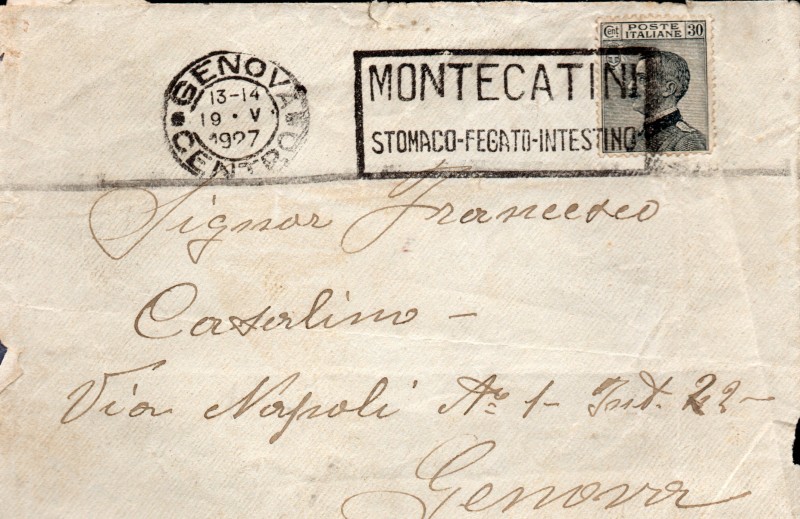 GENOVA CENTRO
13-14
19 · V ·
1927
MONTECATINI
STOMACO-FEGATO-INTESTINO
Cent POSTE ITALIANE 30
Signor Francesco
Casalino -
Via Napoli No 1 - Int. 22 -
Genova